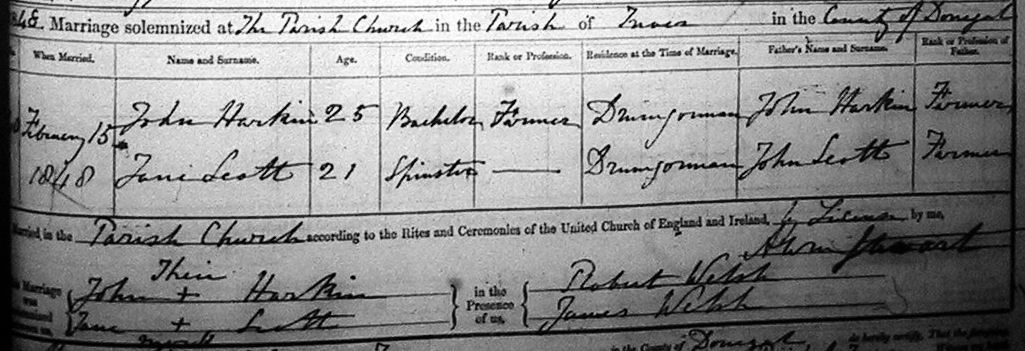 1848. Marriage solemnized at The Parish Church in the Parish of Inver in the County of Donegal
When Married. Name and Surname. Age. Condition. Rank or Profession. Residence at the Time of Marriage. Father's Name and Surname. Rank or Profession of Father.
February 15 John Harkin 25 Bachelor Farmer Drumgorman John Harkin Farmer
1848 Jane Scott 21 Spinster Drumgorman John Scott Farmer
Married in the Parish Church according to the Rites and Ceremonies of the United Church of England and Ireland, by License by me,
Stewart
This Marriage was solemnized between us, { John + Harkin } in the Presence of us, { Robert Welsh
Their
Jane + Scott James Welsh
mark
in the County of Donegal do hereby certify, That the foregoing